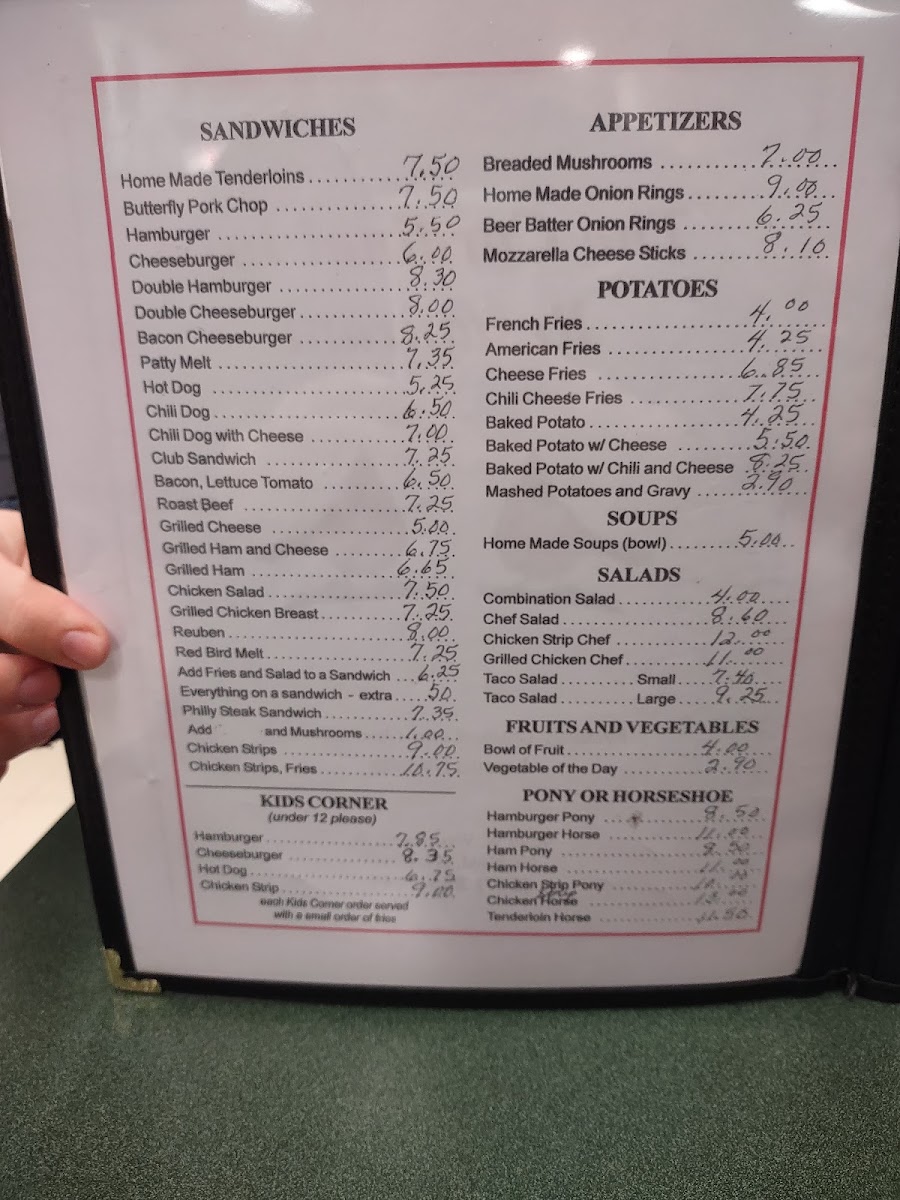 SANDWICHES
Home Made Tenderloins 7.50
Butterfly Pork Chop 7.50
Hamburger 5.50
Cheeseburger 6.00
Double Hamburger 8.30
Double Cheeseburger 8.00
Bacon Cheeseburger 8.25
Patty Melt 7.35
Hot Dog 5.25
Chili Dog 6.50
Chili Dog with Cheese 7.00
Club Sandwich 7.25
Bacon, Lettuce Tomato 6.50
Roast Beef 7.25
Grilled Cheese 5.00
Grilled Ham and Cheese 6.75
Grilled Ham 6.65
Chicken Salad 7.50
Grilled Chicken Breast 7.25
Reuben 8.00
Red Bird Melt 7.25
Add Fries and Salad to a Sandwich 6.25
Everything on a sandwich - extra .50
Philly Steak Sandwich 7.35
Add and Mushrooms 1.00
Chicken Strips 9.00
Chicken Strips, Fries 10.75
KIDS CORNER
(under 12 please)
Hamburger 7.85
Cheeseburger 8.35
Hot Dog 6.75
Chicken Strip 9.00
each Kids Corner order served
with a small order of fries
APPETIZERS
Breaded Mushrooms 7.00
Home Made Onion Rings 9.00
Beer Batter Onion Rings 6.25
Mozzarella Cheese Sticks 8.10
POTATOES
French Fries 4.00
American Fries 4.25
Cheese Fries 6.85
Chili Cheese Fries 7.75
Baked Potato 4.25
Baked Potato w/ Cheese 5.50
Baked Potato w/ Chili and Cheese 8.25
Mashed Potatoes and Gravy 2.90
SOUPS
Home Made Soups (bowl) 5.00
SALADS
Combination Salad 4.00
Chef Salad 8.60
Chicken Strip Chef 12.00
Grilled Chicken Chef 11.00
Taco Salad Small 7.40
Taco Salad Large 9.25
FRUITS AND VEGETABLES
Bowl of Fruit 4.00
Vegetable of the Day 2.90
PONY OR HORSESHOE
Hamburger Pony 8.50
Hamburger Horse 11.00
Ham Pony 8.50
Ham Horse 11.00
Chicken Strip Pony
Chicken Horse
Tenderloin Horse 11.50